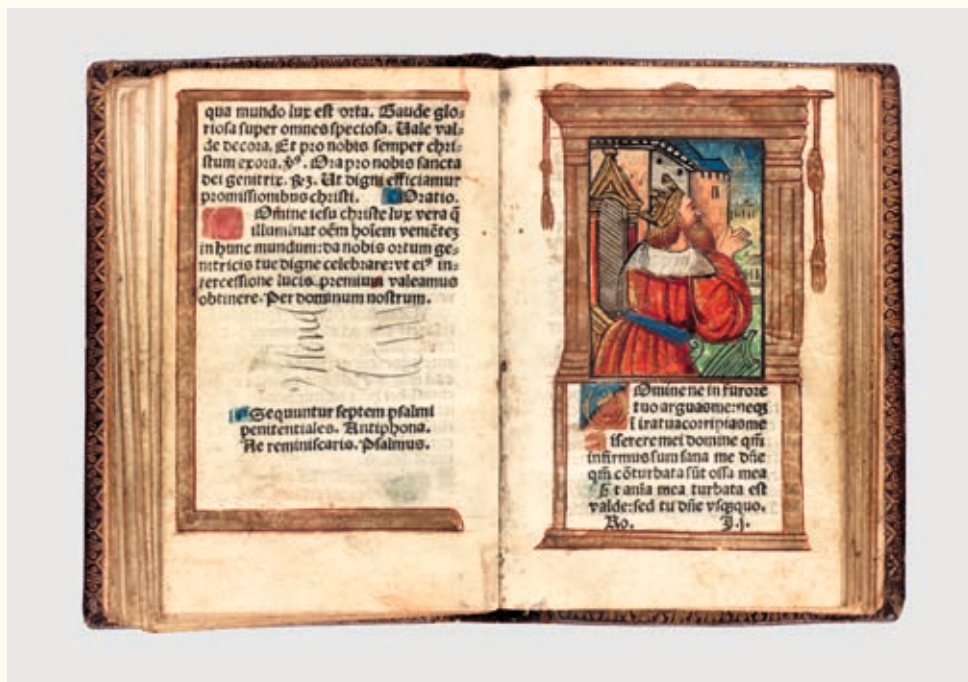 qua mundo lux est orta. Gaude glo-
riosa super omnes speciosa. Vale val-
de decora. Et pro nobis semper chri-
stum exora. ꝟ. Ora pro nobis sancta
dei genitrix. ꝶ. Ut digni efficiamur
promissionibus christi. Oratio.
Omine iesu christe lux vera q̄
illuminat oēm hoīem veniēteꝫ
in hunc mundum: da nobis ortum ge-
nitricis tue digne celebrare: vt eiꝰ in-
tercessione lucis premium valeamus
obtinere. Per dominum nostrum.
Sequuntur septem psalmi
penitentiales. Antiphona.
Ne reminiscaris. Psalmus.
Omine ne in furore
tuo arguas me: neqꝫ
ī ira tua corripias me
iserere mei domine qm̄
infirmus sum sana me dn̄e
qm̄ cōturbata sūt ossa mea
Et aīa mea turbata est
valde: sed tu dn̄e vsqꝫquo.
Ro.